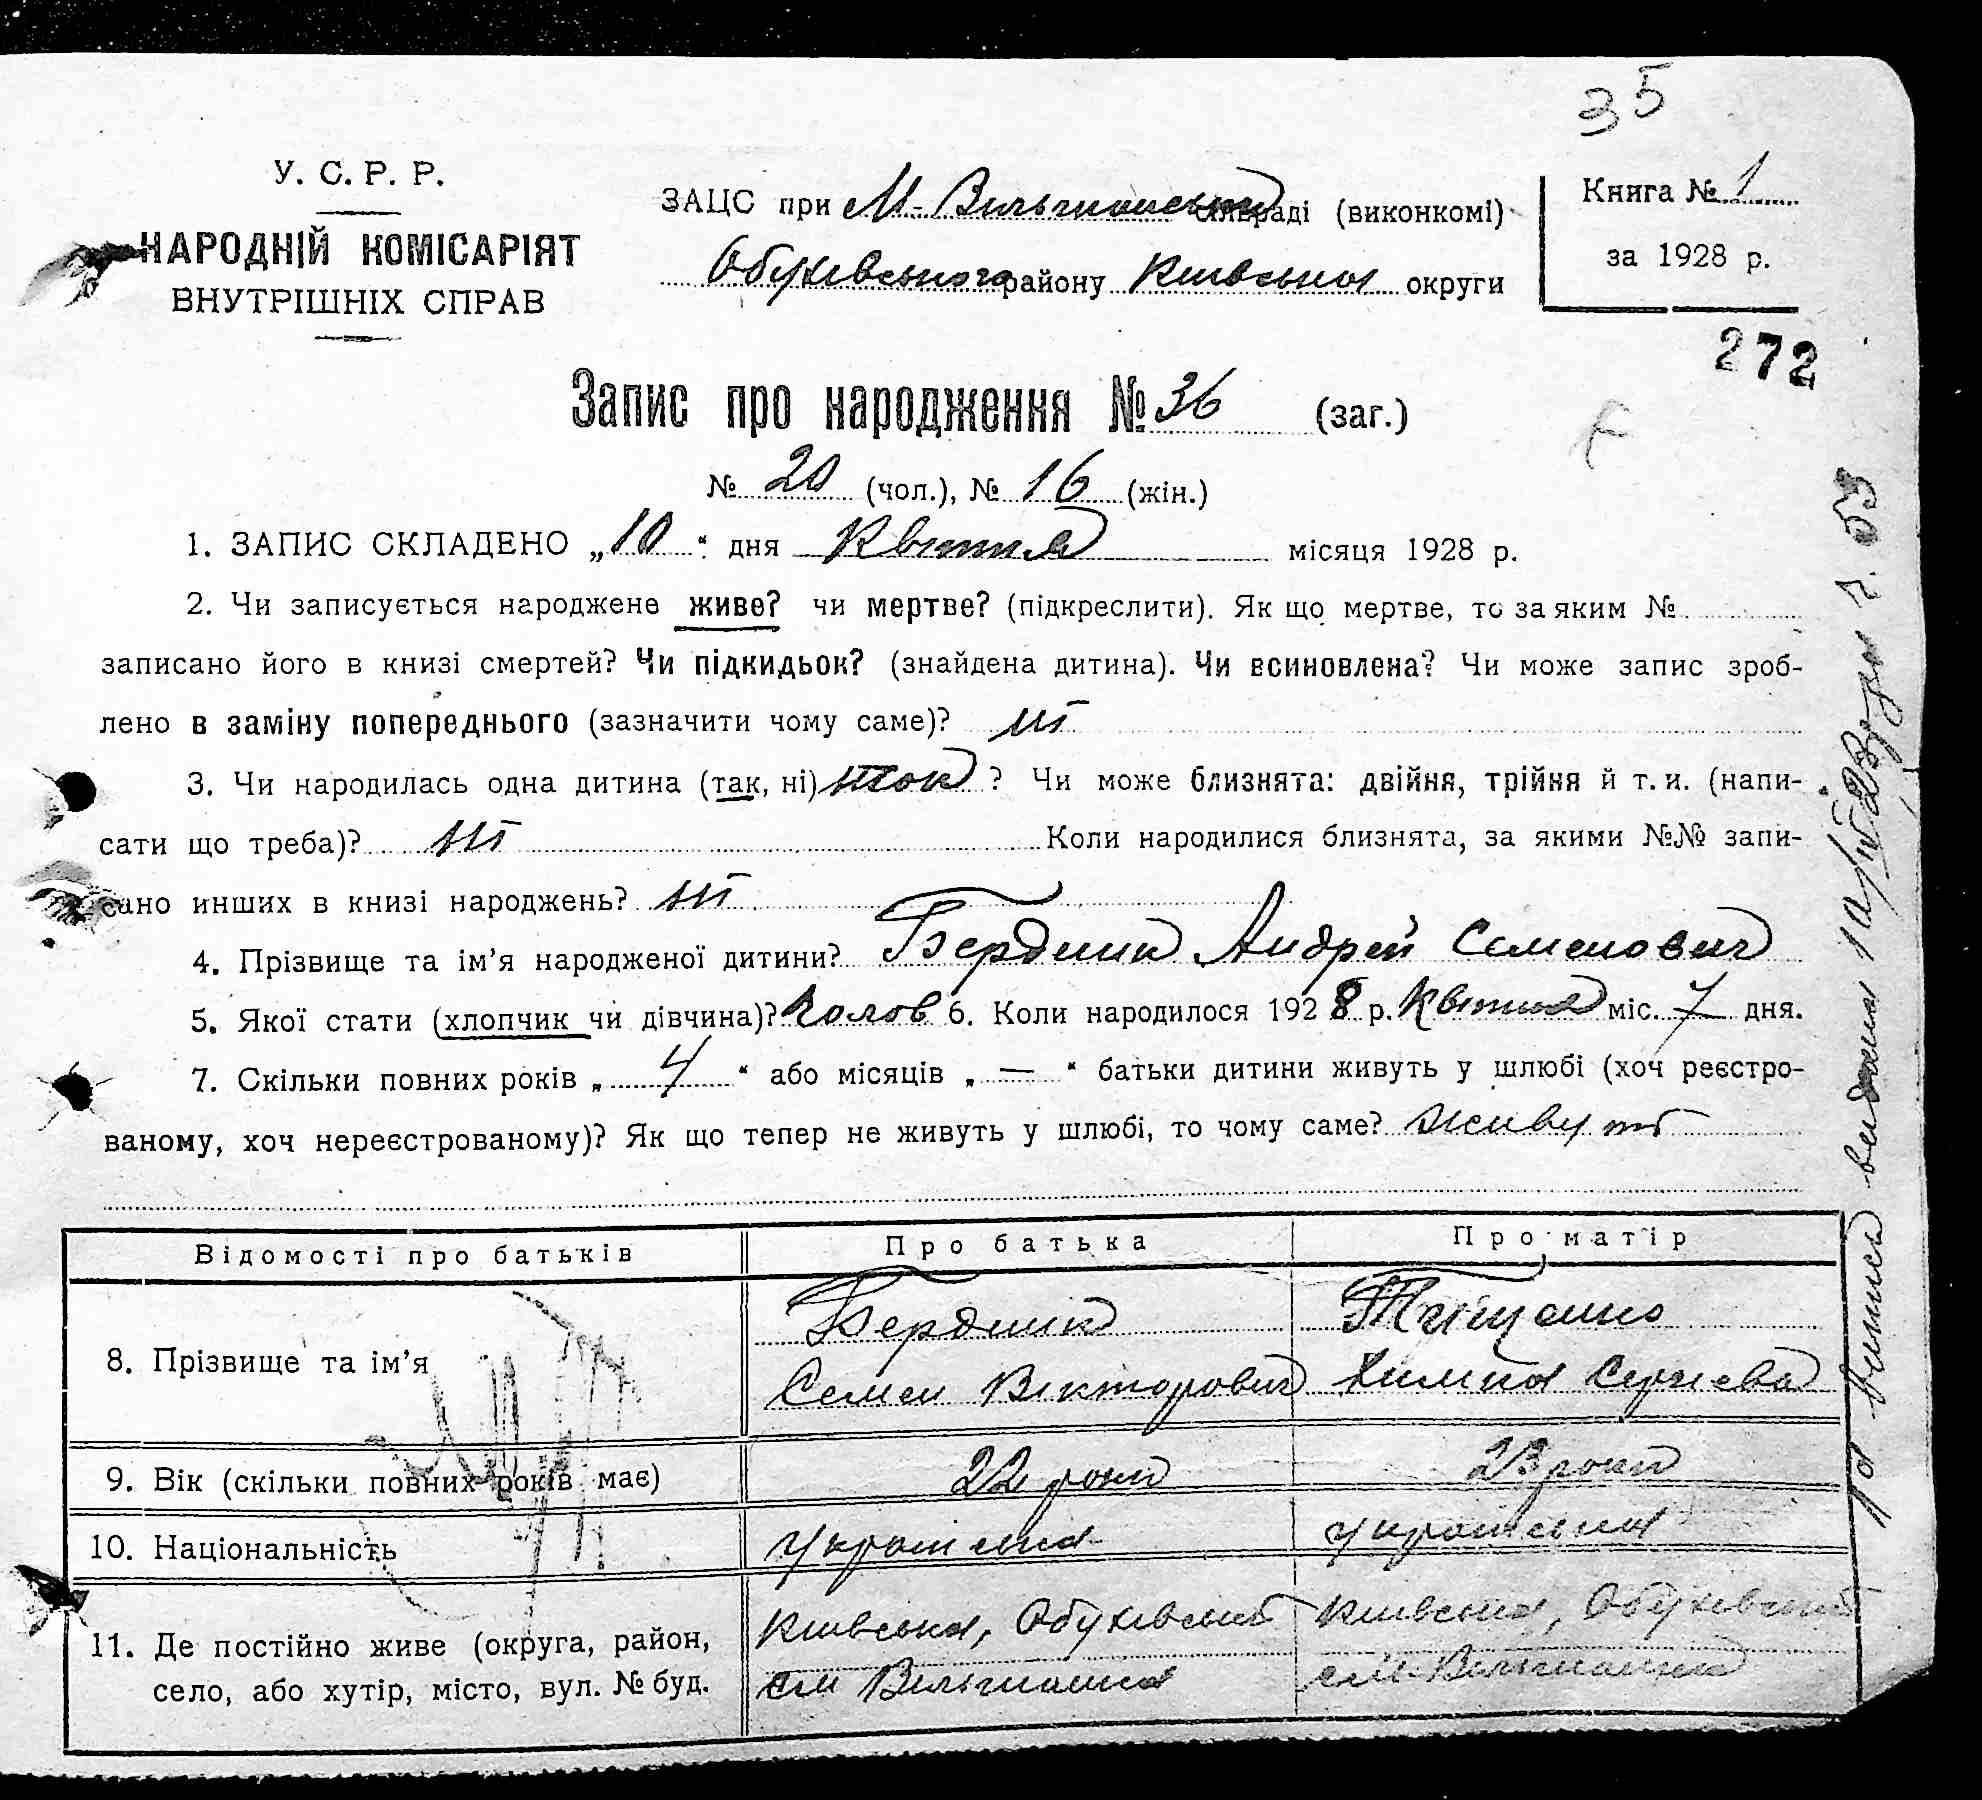 35
У. С. Р. Р.
НАРОДНІЙ КОМІСАРІЯТ
ВНУТРІШНІХ СПРАВ
ЗАЦС при М-Вільшанській сільраді (виконкомі)
Обухівського району Київської округи
Книга № 1
за 1928 р.
272
Запис про народження № 36 (заг.)
№ 20 (чол.), № 16 (жін.)
1. ЗАПИС СКЛАДЕНО „10“ дня Квітня місяця 1928 р.
2. Чи записується народжене живе? чи мертве? (підкреслити). Як що мертве, то за яким №
записано його в книзі смертей? Чи підкидьок? (знайдена дитина). Чи всиновлена? Чи може запис зроб-
лено в заміну попереднього (зазначити чому саме)? ні
3. Чи народилась одна дитина (так, ні) так ? Чи може близнята: двійня, трійня й т. и. (напи-
сати що треба)? ні Коли народилися близнята, за якими №№ запи-
сано инших в книзі народжень? ні
4. Прізвище та ім’я народженої дитини? Бердник Андрей Семенович
5. Якої стати (хлопчик чи дівчина)? чолов 6. Коли народилося 1928 р. Квітня міс. 7 дня.
7. Скільки повних років „ 4 “ або місяців „ — “ батьки дитини живуть у шлюбі (хоч реєстро-
ваному, хоч нереєстрованому)? Як що тепер не живуть у шлюбі, то чому саме? живуть
Відомості про батьків Про батька Про матір
8. Прізвище та ім’я
Бердник
Семен Вікторович
Тищенко
Химка Сергієва
9. Вік (скільки повних років має) 22 роки 23 роки
10. Національність українець українська
11. Де постійно живе (округа, район,
село, або хутір, місто, вул. № буд.
Київська, Обухівський
с М Вільшанка
Київська, Обухівський
с М. Вільшанка
выписка выдана